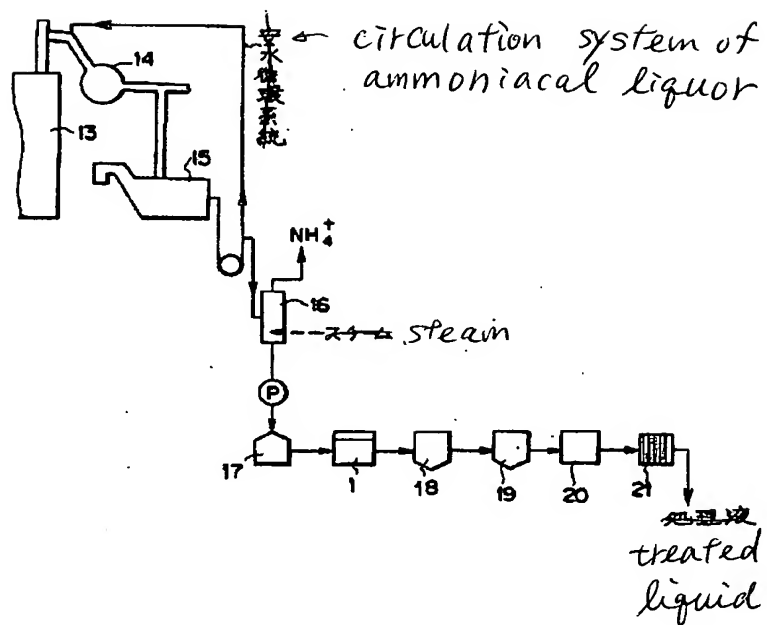 安水循環系統
circulation system of
ammoniacal liquor
14
13
15
NH4+
16
スチーム steam
P
17
1
18
19
20
21
処理液
treated
liquid